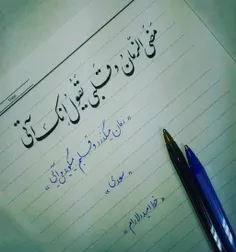 مضی الزمان و قلبی یقول انک آتی
« زمان میگذرد و قلبم میگوید می‌آیی »
« سعدی »
« خط امید دلارام »